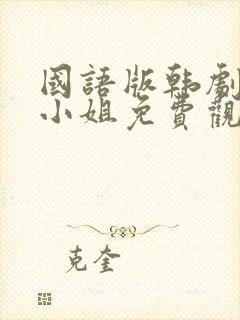 國語版韩劇
小姐免費觀
克奎